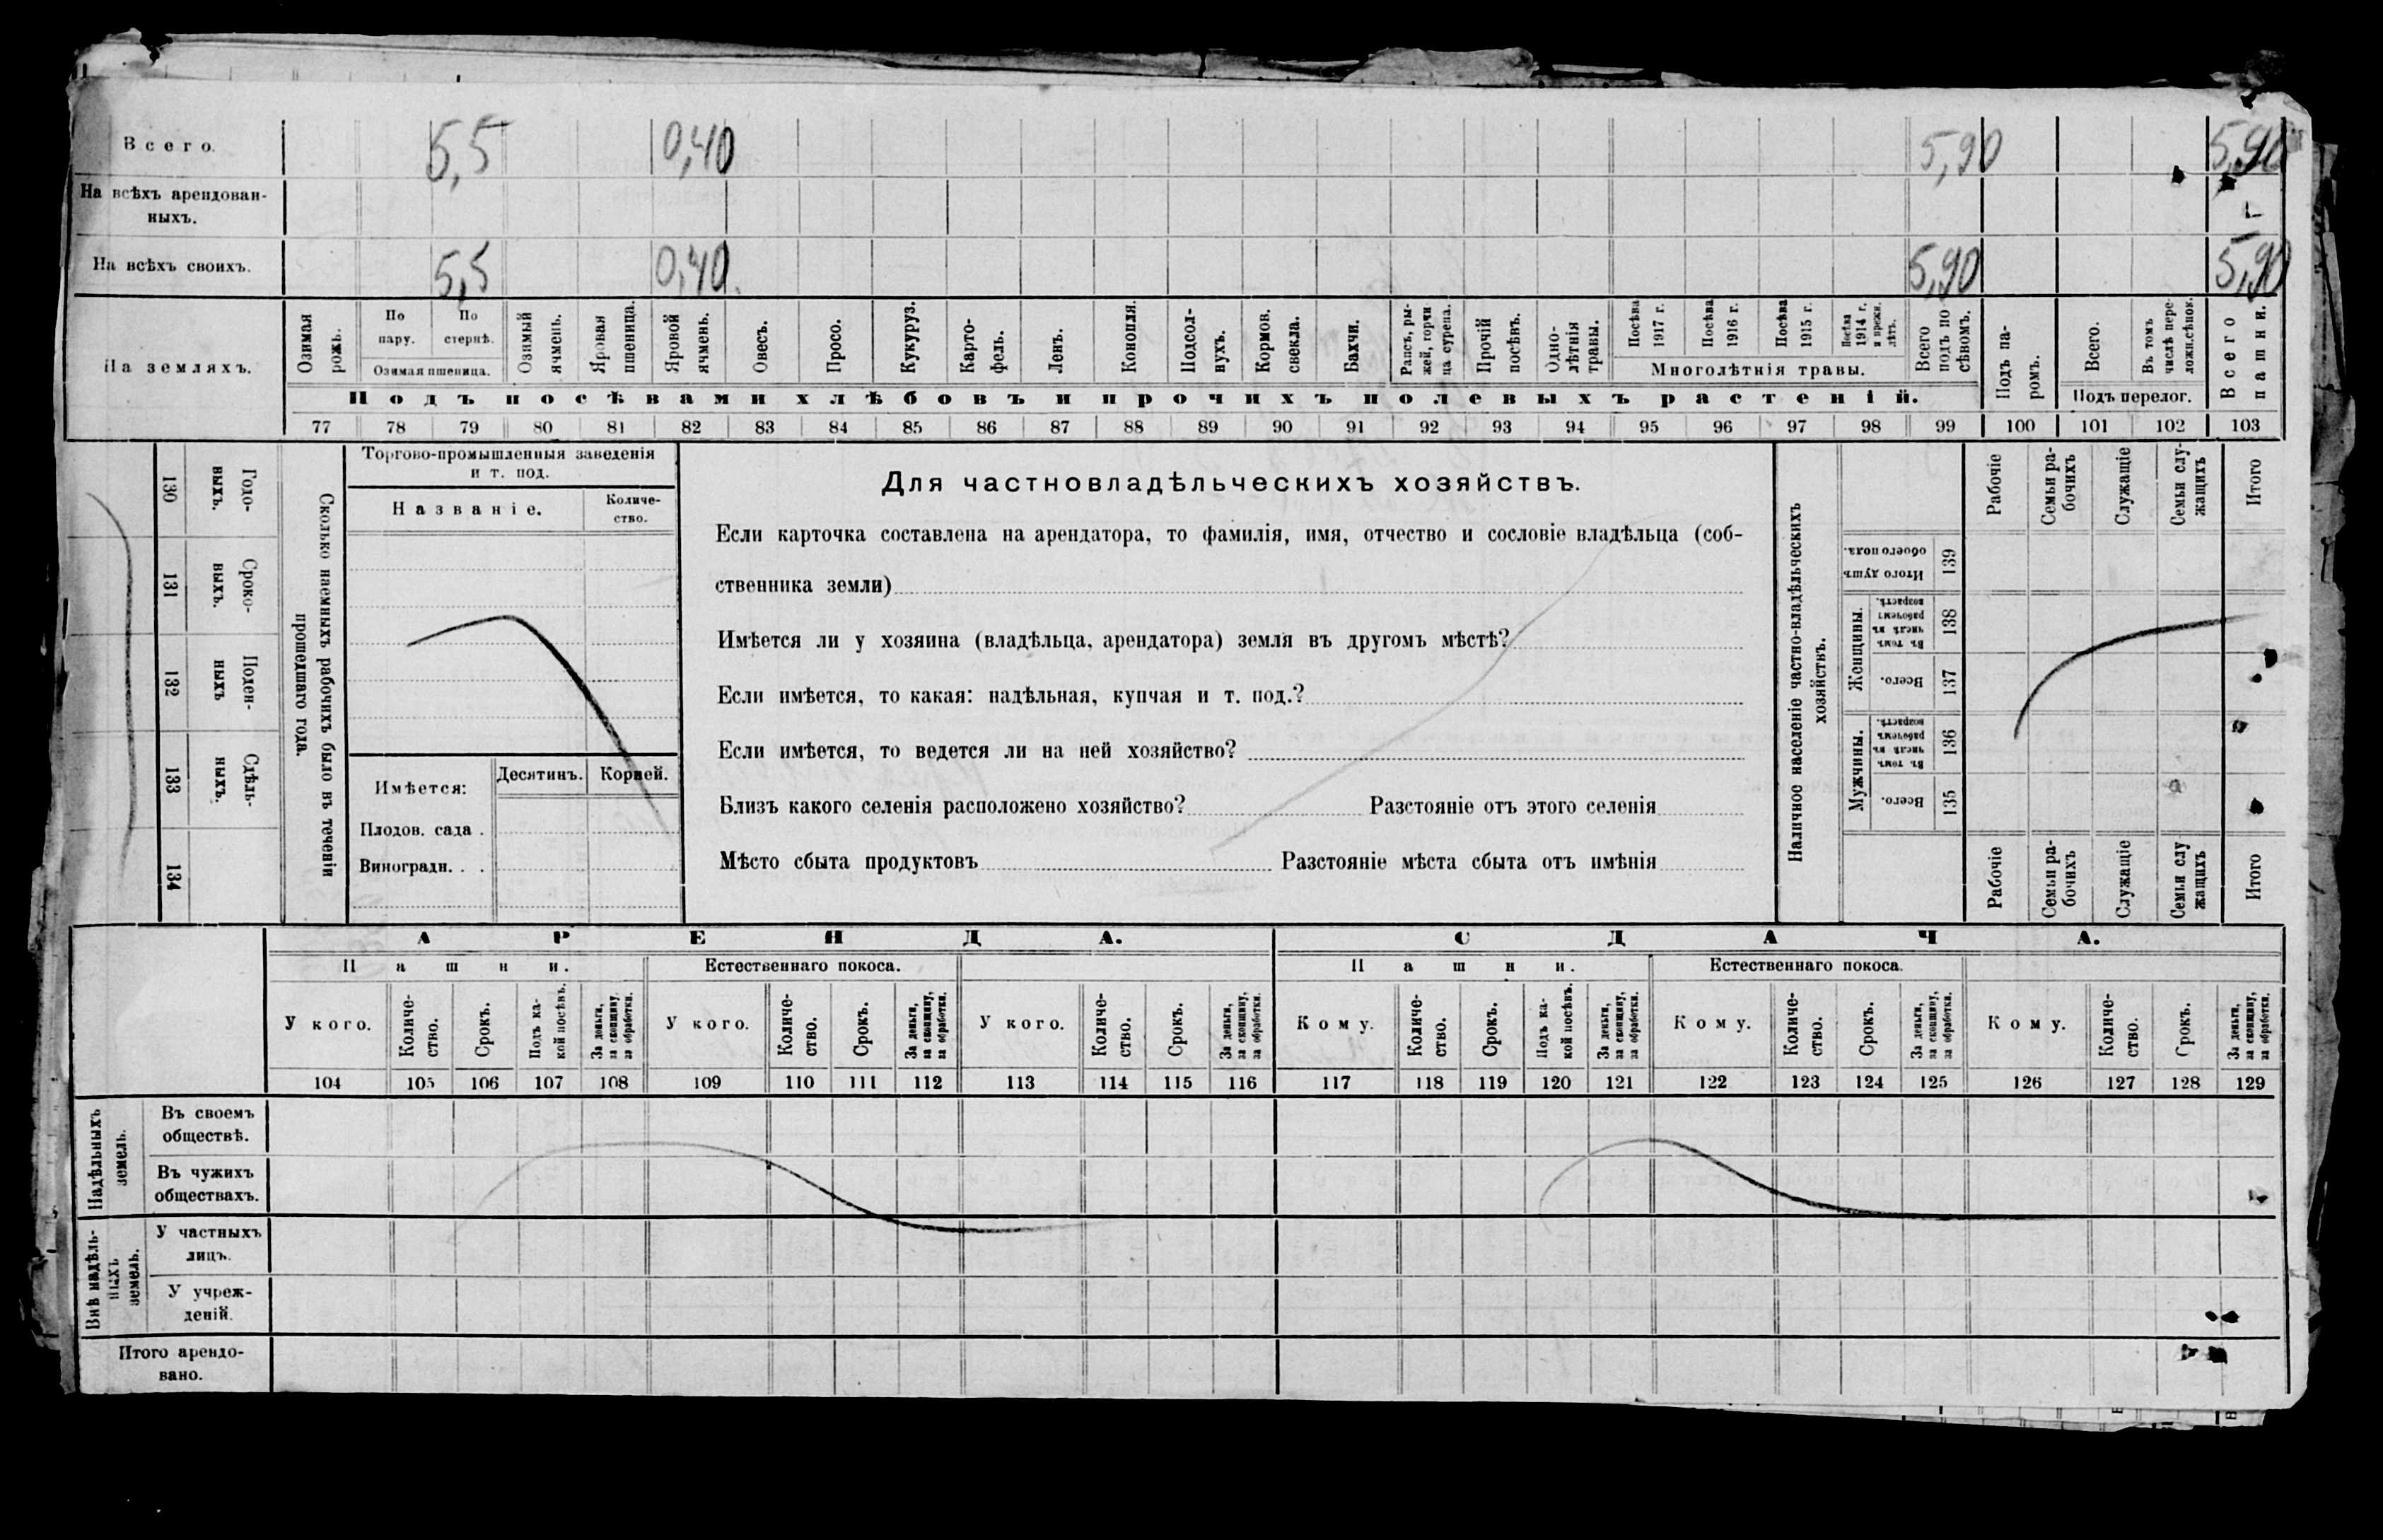 Всего. 5,5 0,40 5,90 5,90
На всѣхъ арендован-
ныхъ.
На всѣхъ своихъ. 5,5 0,40. 5,90 5,90
На земляхъ.
Озимая рожь.
По пару.
По стернѣ.
Озимая пшеница.
Озимый ячмень.
Яровая пшеница.
Яровой ячмень.
Овесъ.
Просо.
Кукуруз.
Карто-
фель.
Ленъ.
Конопля.
Подсол-
нухъ.
Кормов. свекла.
Бахчи.
Рапсъ, ры-
жей, горчи
ца сурепа.
Прочій посѣвъ.
Одно-
лѣтнія
травы.
Посѣва 1917 г.
Посѣва 1916 г.
Посѣва 1915 г.
Посѣва 1914 г. и прежн. лѣтъ.
Многолѣтнія травы.
Всего подъ по
сѣвомъ.
Подъ посѣвами хлѣбовъ и прочихъ полевыхъ растеній.
Подъ па-
ромъ.
Всего.
Въ томъ числѣ пере-
ложн.сѣнок.
Подъ перелог.
Всего пашни.
77 78 79 80 81 82 83 84 85 86 87 88 89 90 91 92 93 94 95 96 97 98 99 100 101 102 103
130 Годо-
ныхъ.
131 Сроко-
ныхъ.
132 Поден-
ныхъ
133 Сдѣль-
ныхъ.
134
Сколько наемныхъ рабочихъ было въ теченіи
прошедшаго года.
Торгово-промышленныя заведенія
и т. под.
Названіе.
Количе-
ство.
Имѣется:
Десятинъ. Корней.
Плодов. сада .
Виноградн. . .
Для частновладѣльческихъ хозяйствъ.
Если карточка составлена на арендатора, то фамилія, имя, отчество и сословіе владѣльца (соб-
ственника земли)
Имѣется ли у хозяина (владѣльца, арендатора) земля въ другомъ мѣстѣ?
Если имѣется, то какая: надѣльная, купчая и т. под.?
Если имѣется, то ведется ли на ней хозяйство?
Близъ какого селенія расположено хозяйство? Разстояніе отъ этого селенія
Мѣсто сбыта продуктовъ Разстояніе мѣста сбыта отъ имѣнія
Наличное населеніе частно-владѣльческихъ
хозяйствъ.
Рабочіе
Семьи ра-
бочихъ
Служащіе
Семьи слу-
жащихъ
Итого
Итого душъ
обоего пола.
139
Женщины.
Въ томъ числѣ въ рабочемъ возрастѣ.
138
Всего.
137
Мужчины.
Въ томъ числѣ въ рабочемъ возрастѣ.
136
Всего.
135
Рабочіе
Семьи ра-
бочихъ
Служащіе
Семьи слу
жащихъ
Итого
АРЕНДА. СДАЧА.
Пашни. Естественнаго покоса. Пашни. Естественнаго покоса.
У кого.
Количе-
ство.
Срокъ.
Подъ ка-
кой посѣвъ.
За деньги,
за скопщину,
за обработки.
У кого.
Количе-
ство.
Срокъ.
За деньги,
за скопщину,
за обработки.
У кого.
Количе-
ство.
Срокъ.
За деньги,
за скопщину,
за обработки.
Кому.
Количе-
ство.
Срокъ.
Подъ ка-
кой посѣвъ.
За деньги,
за скопщину,
за обработки.
Кому.
Количе-
ство.
Срокъ.
За деньги,
за скопщину,
за обработки.
Кому.
Количе-
ство.
Срокъ.
За деньги,
за скопщину,
за обработки.
104 105 106 107 108 109 110 111 112 113 114 115 116 117 118 119 120 121 122 123 124 125 126 127 128 129
Надѣльныхъ
земель.
Въ своемъ
обществѣ.
Въ чужихъ
обществахъ.
Внѣ надѣль-
ныхъ
земель.
У частныхъ
лицъ.
У учреж-
деній.
Итого арендо-
вано.